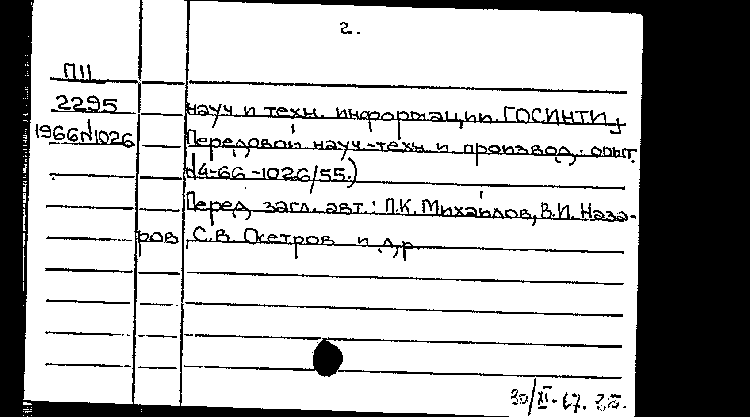 2.
П11
2295 науч и техн. информации. ГОСИНТИ,
1966 N1026 Передовой науч-техн и. производ. опыт
N4-66-1026/55.)
Перед загл. авт.: П.К. Михайлов, В.И. Наза-
ров, С.В. Осетров и др.
30/XI-67.